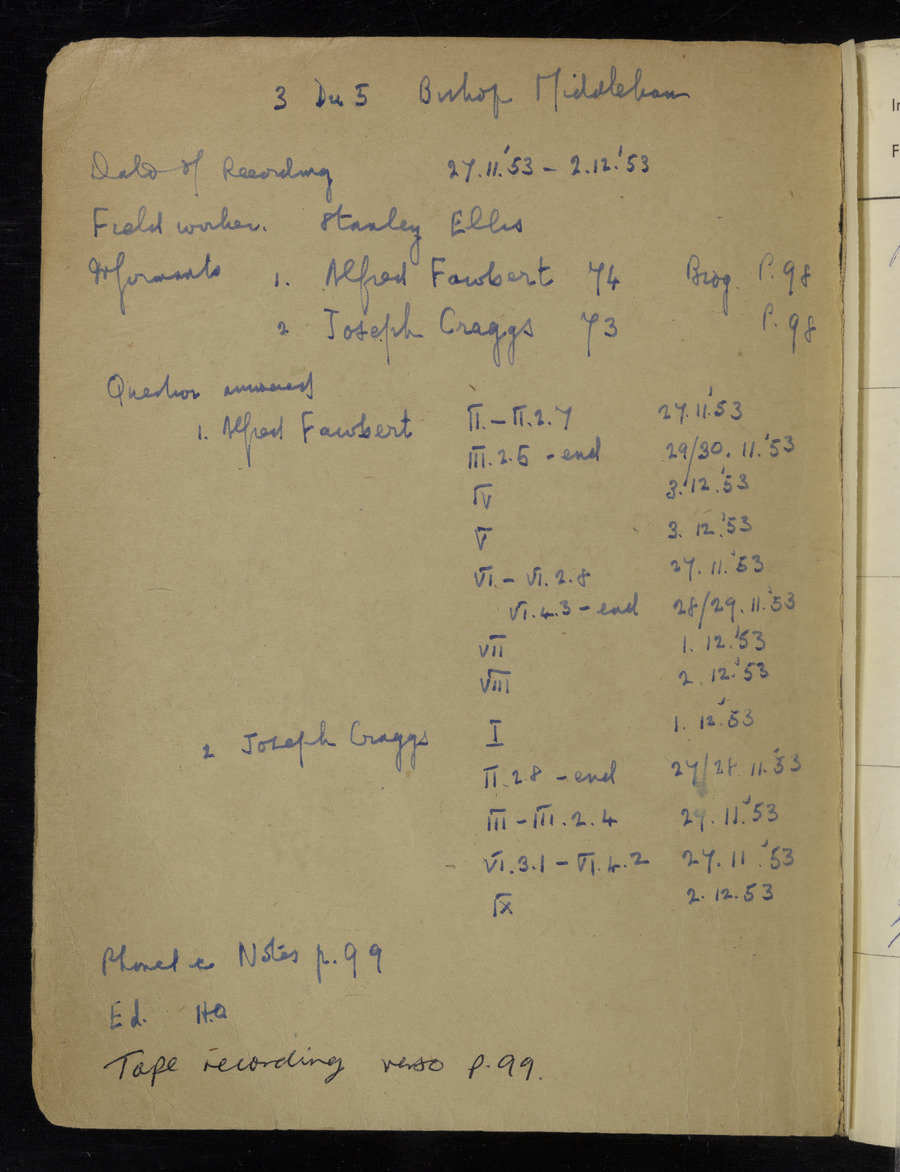 3 Du 5 Bishop Middleham
Date of Recording 27.11.'53 – 2.12.'53
Field worker. Stanley Ellis
Informants 1. Alfred Fawbert 74 Biog. P. 98
2 Joseph Craggs 73 P. 98
Question answered
1. Alfred Fawbert II. – II.2.7 27.11.'53
III.2.5 - end 29/30.11.'53
IV 3.12.'53
V 3.12.'53
VI – VI.2.8 27.11.'53
VI.4.3 – end 28/29.11.'53
VII 1.12.'53
VIII 2.12.'53
2 Joseph Craggs I 1.12.'53
II.2.8 – end 27/28.11.'53
III – III.2.4 27.11.'53
VI.3.1 – VI.4.2 27.11.'53
IX 2.12.53
Phonetic Notes p.99
Ed. H.O
Tape recording verso p.99.
In
F